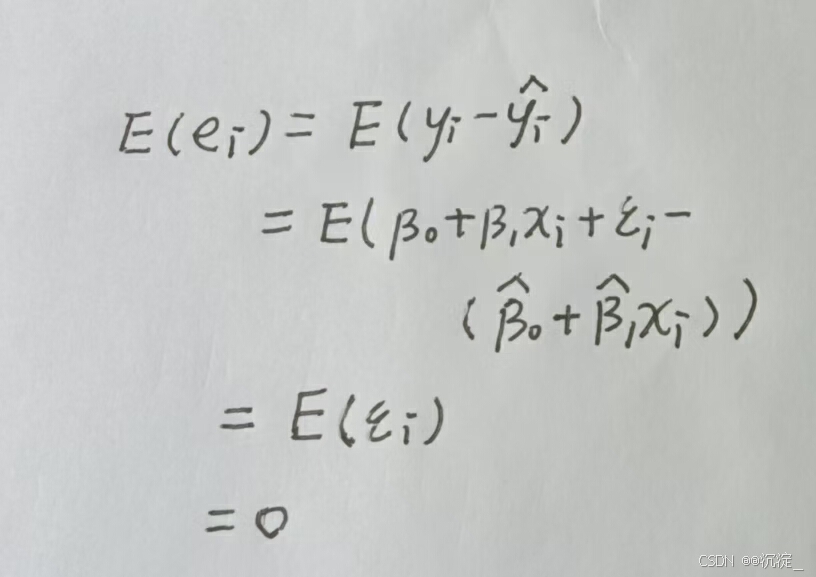 E(eᵢ) = E(yᵢ − ŷᵢ)
= E(β₀ + β₁xᵢ + εᵢ −
(β̂₀ + β̂₁xᵢ))
= E(εᵢ)
= 0
CSDN @@沉淀_